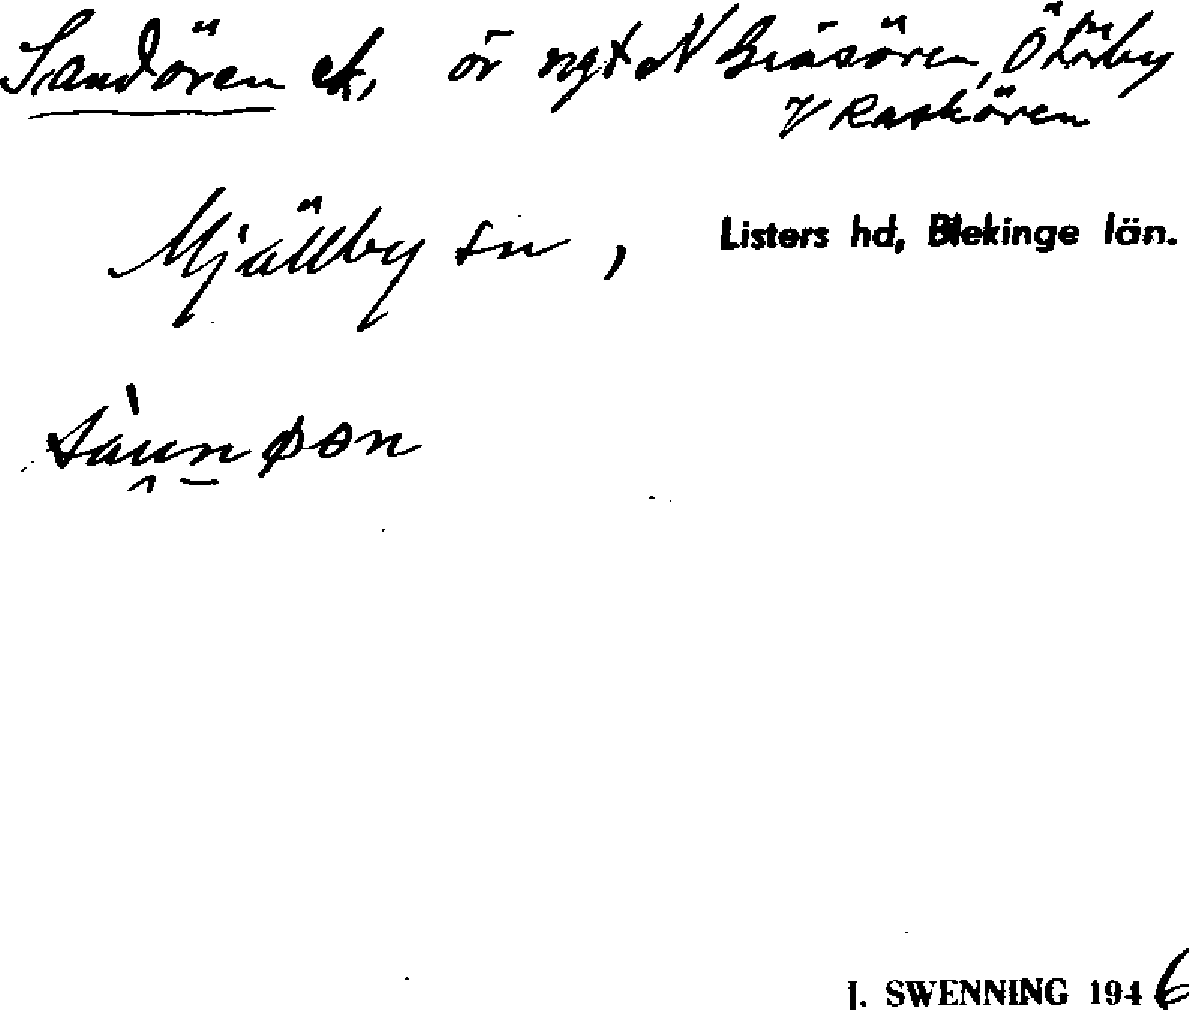 Sandören sk, ör ngt N Gräsören, Ö Hörby
V Raskören
Mjällby sn, Listers hd, Blekinge län.
J. SWENNING 1946